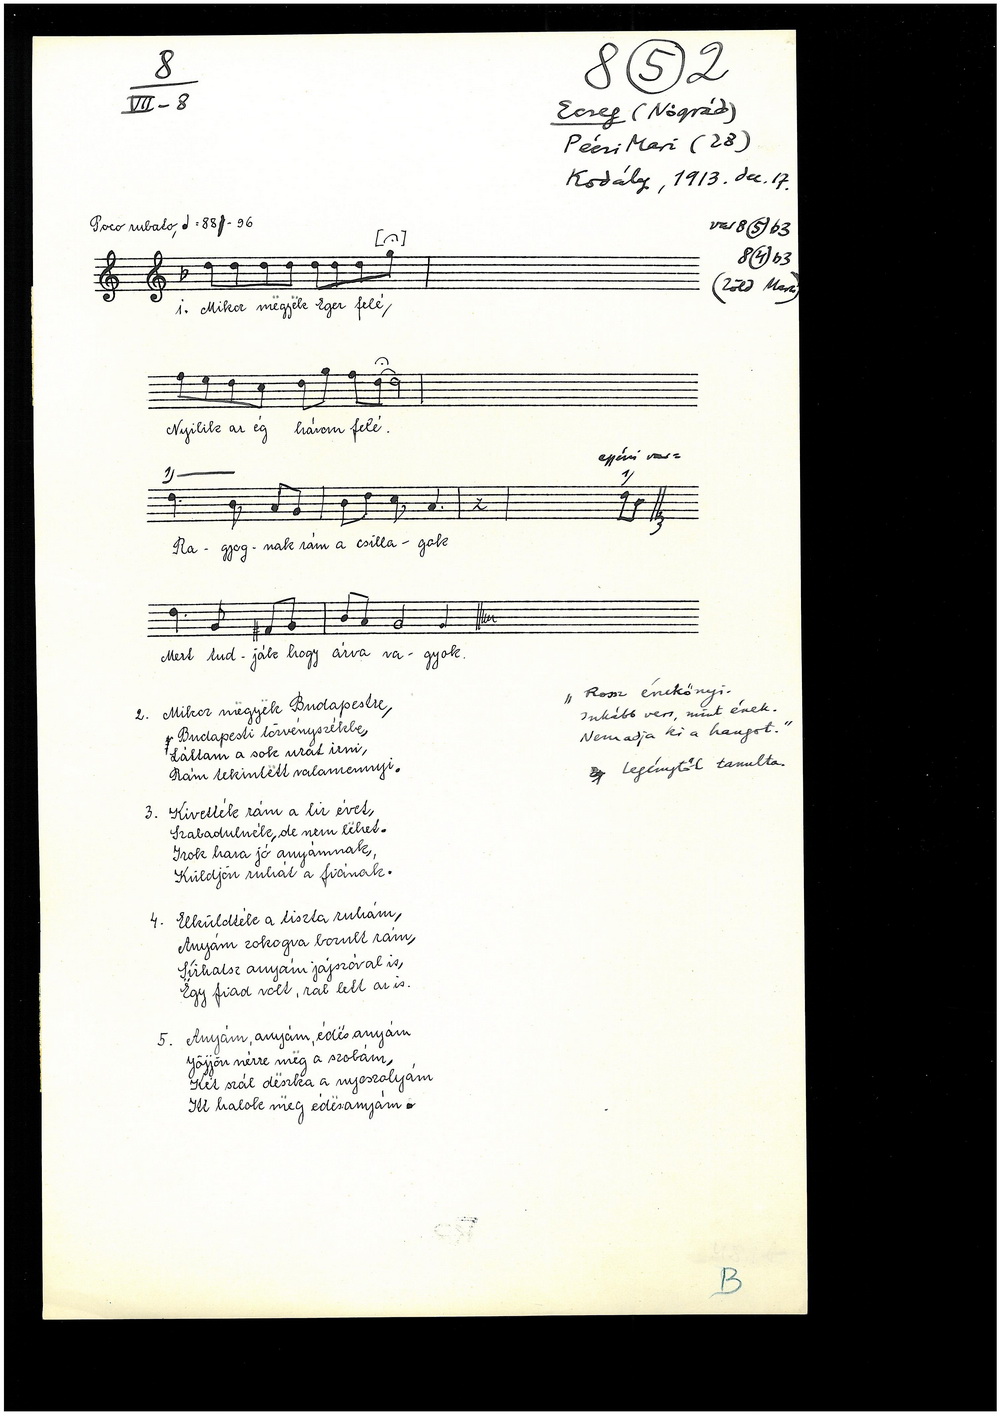 8
VII-8
8 (5) 2
Ecseg (Nógrád)
Pécsi Mari (28)
Kodály, 1913. dec. 17.
Poco rubato, = 88 - 96
var 8(5) b3
8(4) b3
(Zöld Mari)
1. Mikor mëgyëk Eger felé,
Nyilik az ég három felé.
1)
egyéni var =
1)
Ra - gyog - nak rám a csilla - gok
Mert tud - ják hogy árva va - gyok.
2. Mikor mëgyëk Budapestre,
Budapesti törvényszékbe,
Láttam a sok urat irni,
Rám tekintëtt valamennyi.
„Rossz énekönyi.
inkább vers, mint ének.
Nem adja ki a hangot."
legénytől tanulta.
3. Kivették rám a tiz évet,
Szabadulnék, de nem lëhet.
Irok haza jó anyámnak,
Küldjön ruhát a fiának.
4. Elküldték a tiszta ruhám,
Anyám zokogva borult rám,
Sírhatsz anyám jajszóval is,
Ëgy fiad volt, rab lett az is.
5. Anyám, anyám, édës anyám
Jöjjön nézze mëg a szobám,
Két szál dëszka a nyoszolyám
Itt halok mëg édësanyám.
B